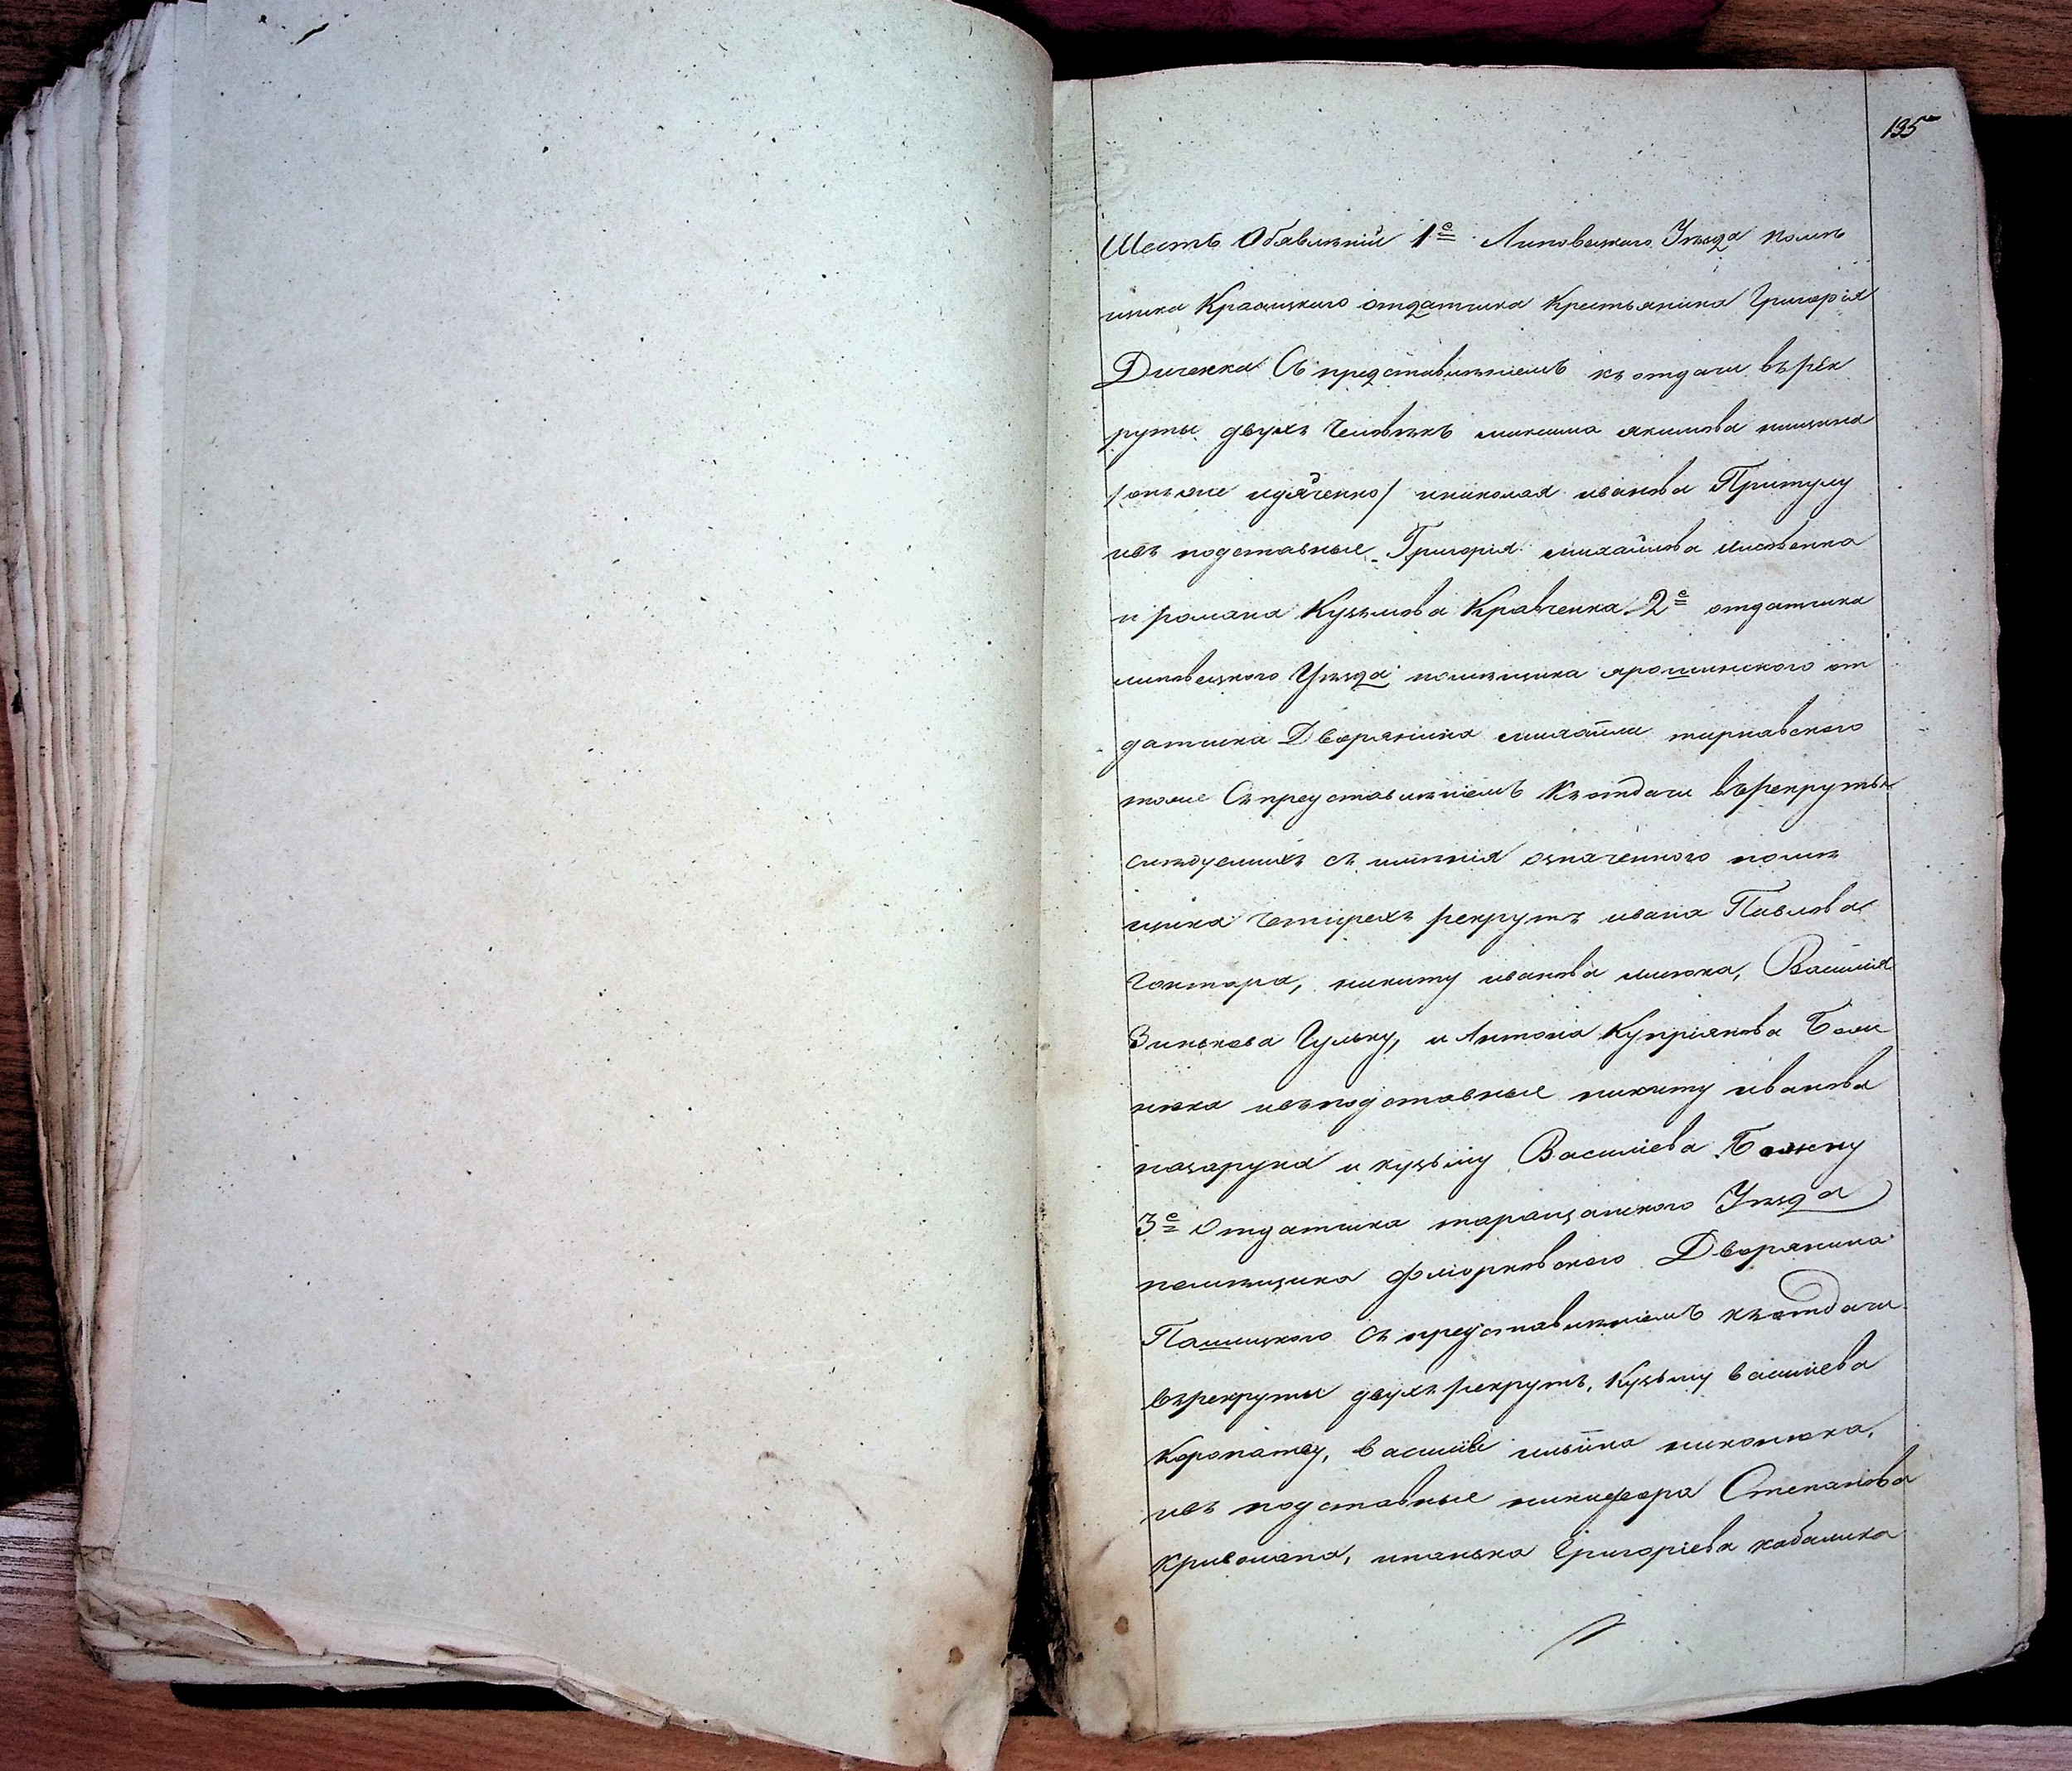 135
Шесть Обявленій 1е Липовецкого Уезда помѣ
щика Красицкого отдатчика Крестьянина Григорія
Диченка Съ представленіемъ къ отдачи въ рек
руты двухъ Человѣкъ максима якимова
/онъ же идяченко/ иниколая иванова Притулу
ивъ подставные Григорія михайлова Лисовенка
и романа Кузмова Кравченка 2е отдатчика
липовецкого Уѣзда помѣщика ярошинского от
датчика Дворянина михайла тирнавского
тоже Съпредставленіемъ Къотдачи върекруты
слѣдуемихъ съ имѣнія означенного помѣ
щика Четирехъ рекрутъ ивана Павлова
гонтара, никиту иванова Василія
Зинкова Гульку, и Антона Купріянова
нюка ивъподставные никиту иванова
назарука и кузьму Василіева
3е Отдатчика таращанского Уѣзда
помѣщика Дворянина
Пашицкого Съ представленіемъ къотдачи
върекруты двухъ рекрутъ, Кузьму василіева
Коропатву, василія ильина никонюка,
ивъ подставные никифора Степанова
Кривошапа, Григоріева кобалика